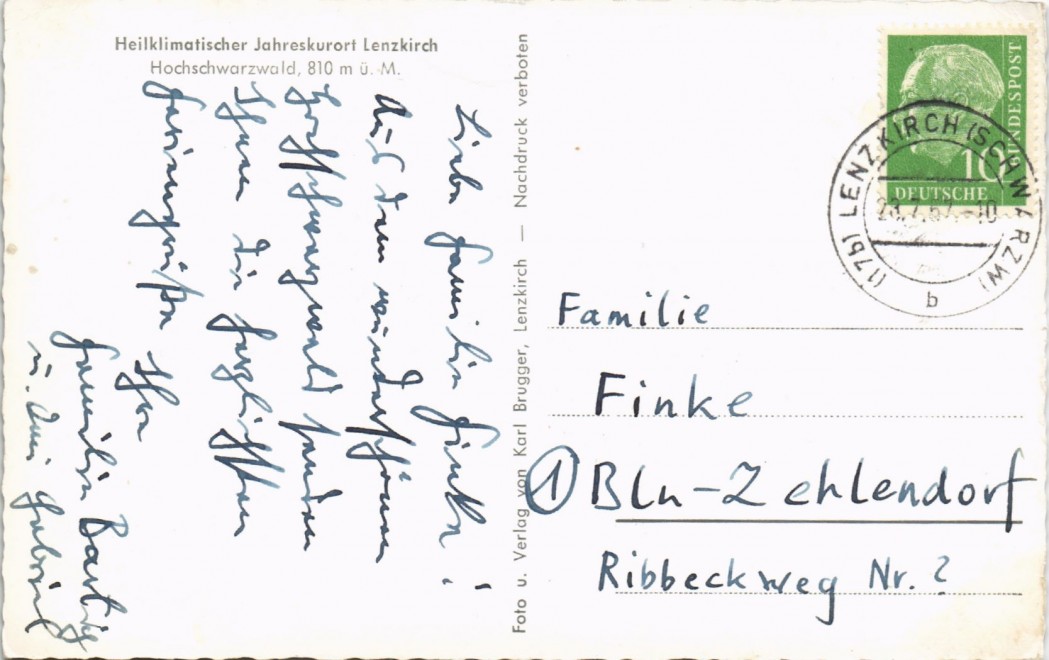 Heilklimatischer Jahreskurort Lenzkirch
Hochschwarzwald, 810 m ü. M.
Liebe Familie Finke!
Aus dem wunderschönen
Hochschwarzwald senden
Ihnen die herzlichsten
Feriengrüße Ihre
Familie Bartig
u.
Foto u. Verlag von Karl Brugger, Lenzkirch — Nachdruck verboten
DEUTSCHE
BUNDESPOST
10
(17b) LENZKIRCH (SCHWARZW)
b
Familie
Finke
① Bln-Zehlendorf
Ribbeckweg Nr. ?